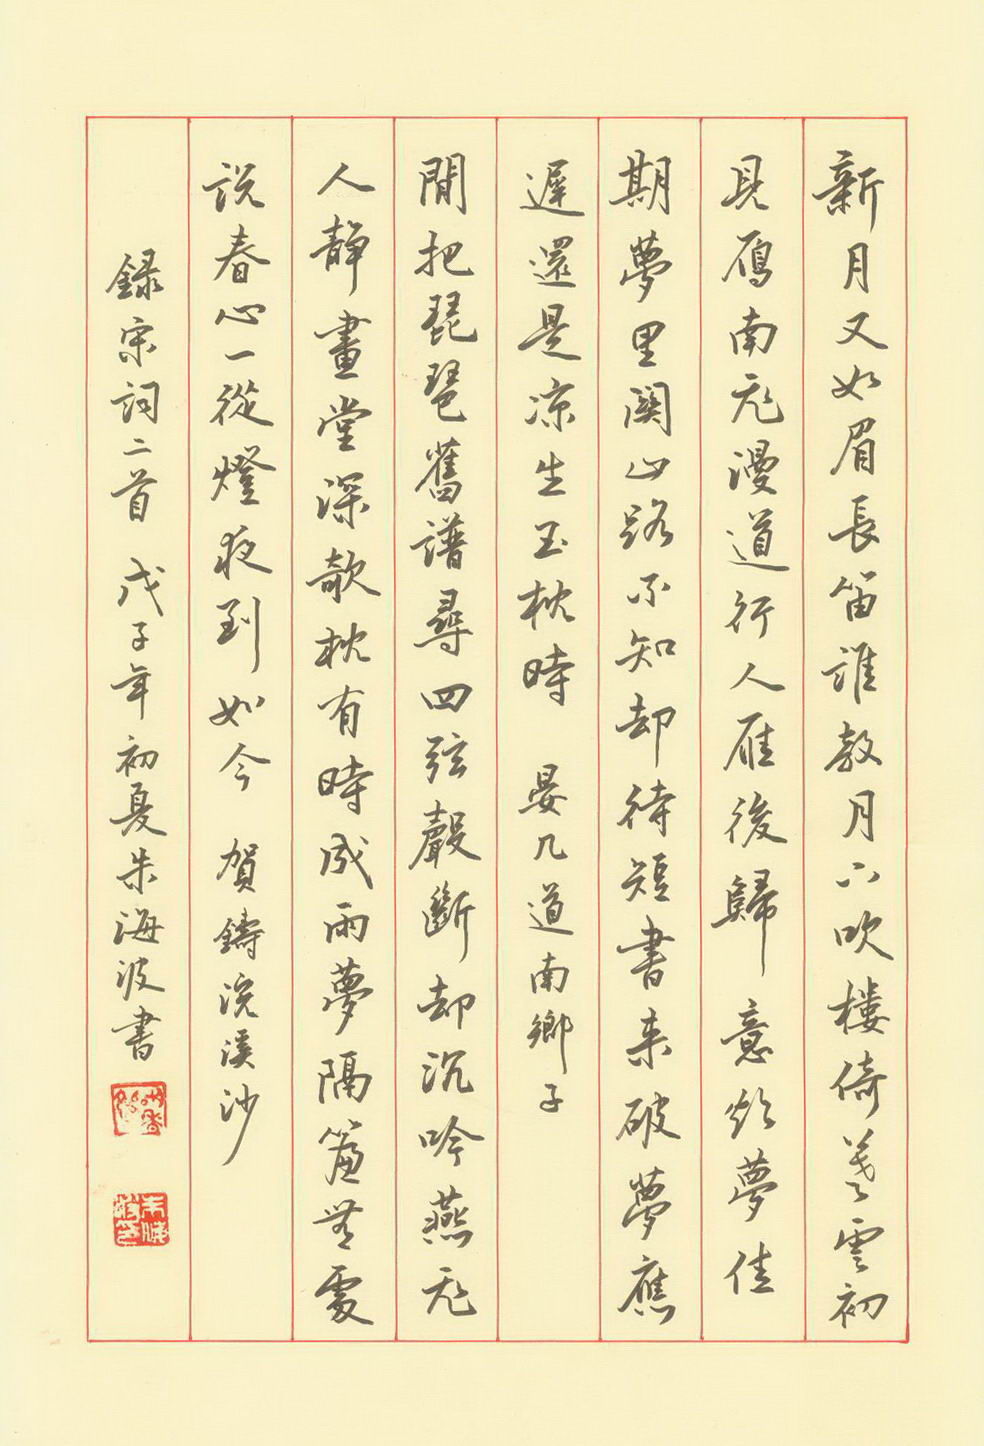 新月又如眉長笛誰教月下吹樓倚暮雲初
見鴈南飛漫道行人雁後歸 意欲夢佳
期夢里関山路不知却待短書来破夢應
遲還是凉生玉枕時 晏几道南鄉子
閒把琵琶舊譜尋四弦聲斷却沉吟燕飛
人靜畫堂深欹枕有時成雨夢隔簾無處
説春心一從燈夜到如今 賀鑄浣溪沙
録宋詞二首 戊子年初夏朱海波書
朱海波印